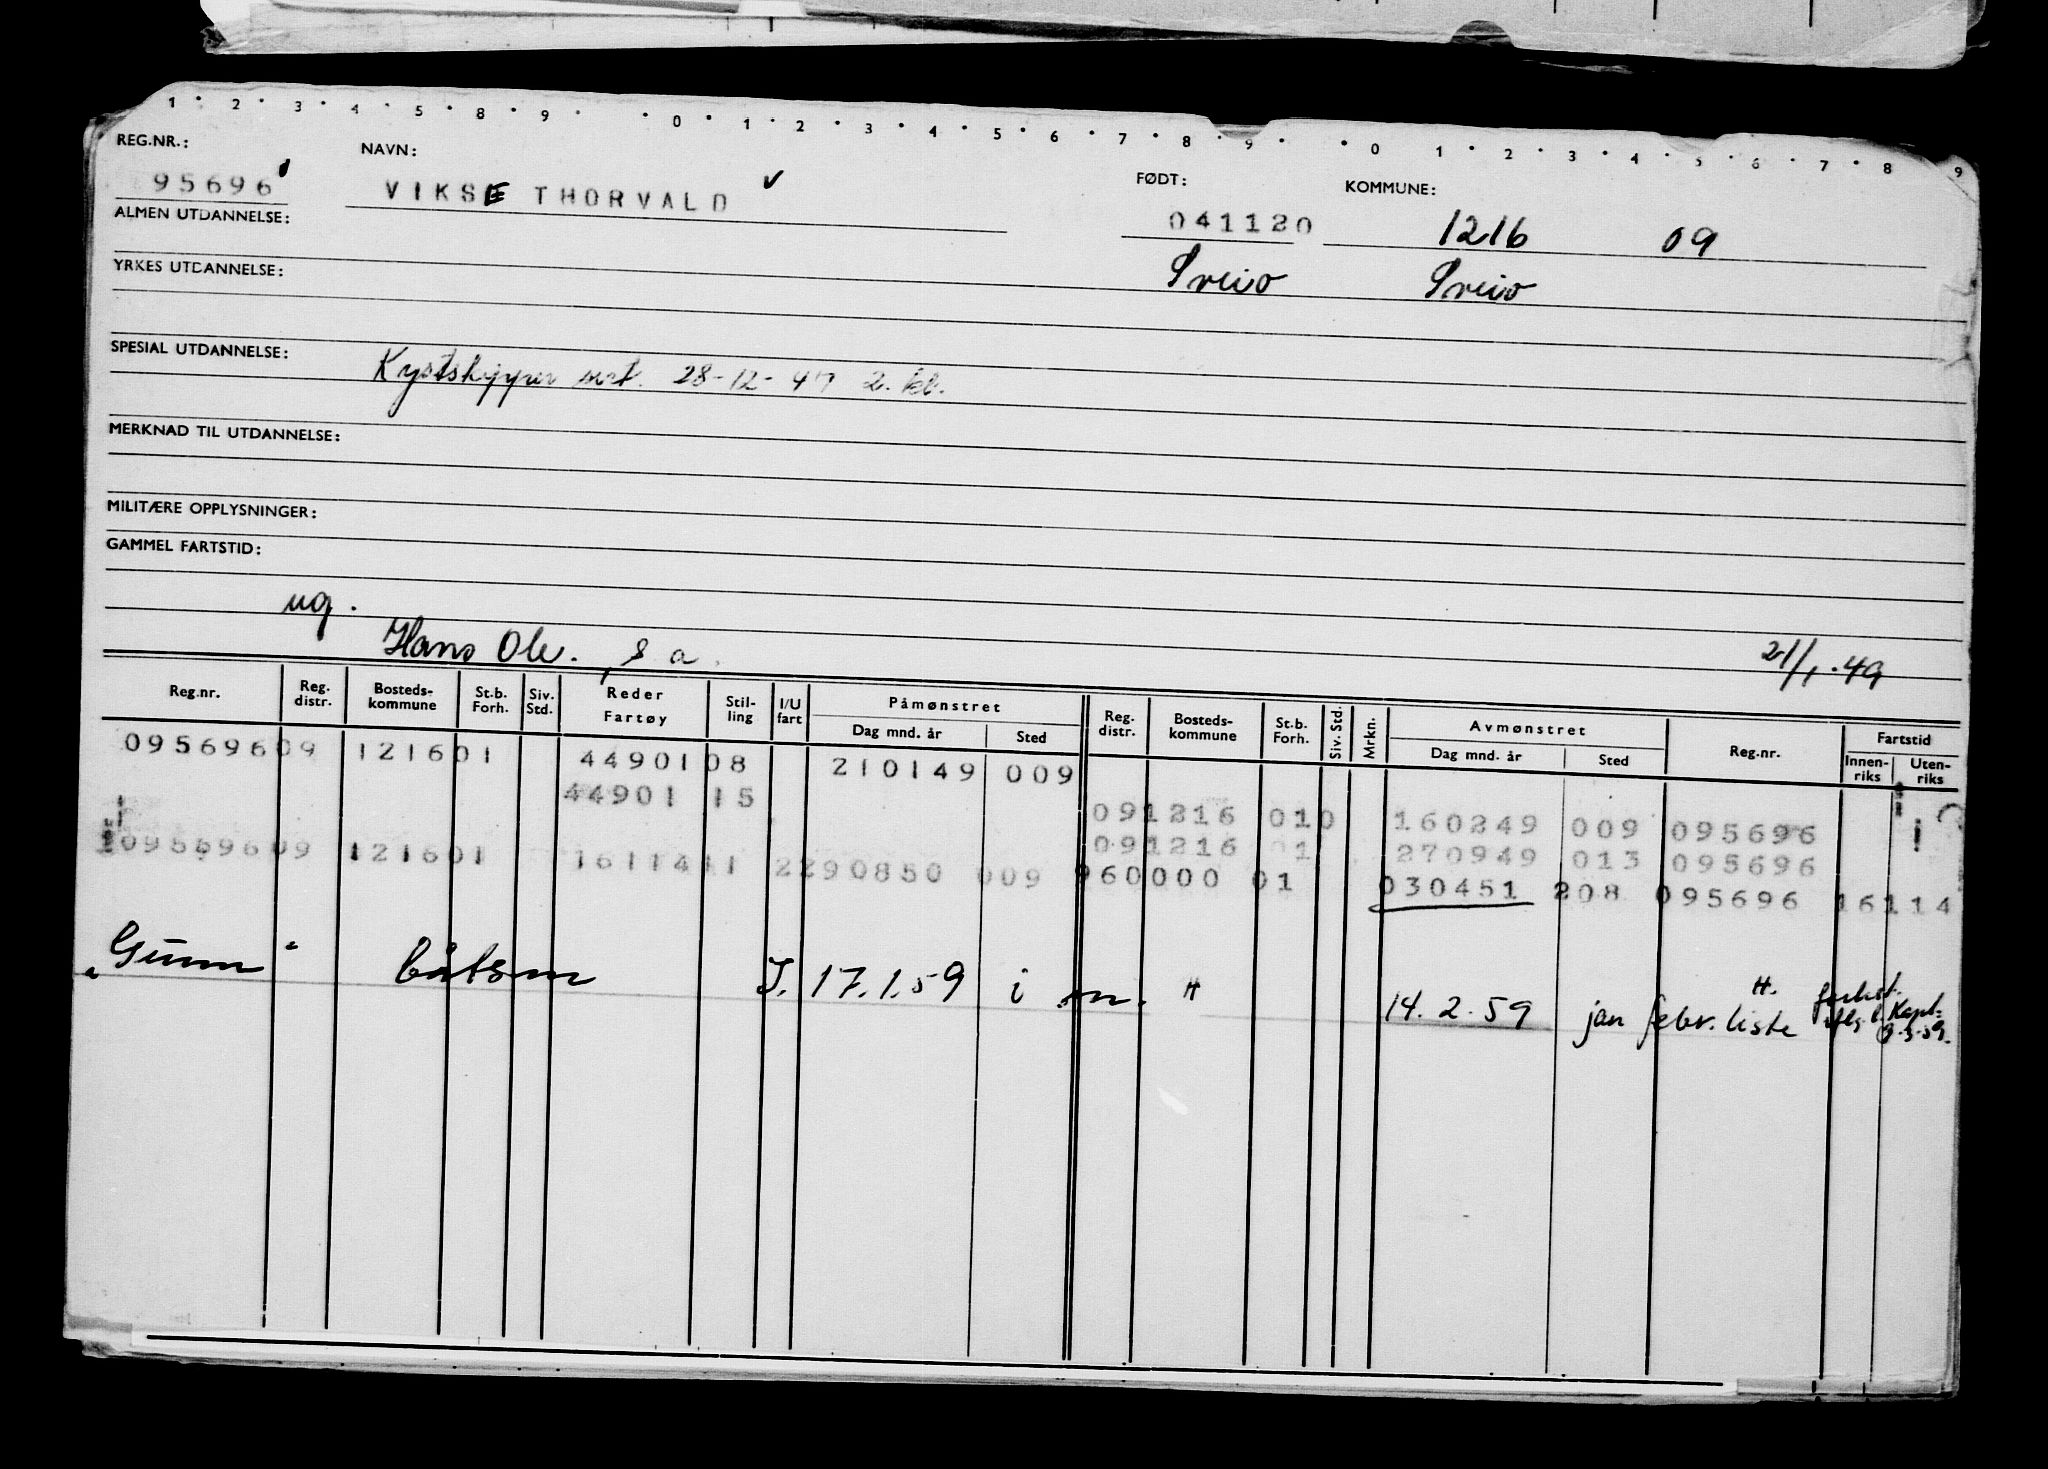 1 2 3 4 5 8 9 0 1 2 3 4 5 6 7 8 9 0 1 2 3 4 5 6 7 8 9
REG.NR.: NAVN: FØDT: KOMMUNE:
95696 VIKSE THORVALD 041120 1216 09
ALMEN UTDANNELSE:
Sveio Sveio
YRKES UTDANNELSE:
SPESIAL UTDANNELSE: Kystskipper sert. 28-12-47 2. kl.
MERKNAD TIL UTDANNELSE:
MILITÆRE OPPLYSNINGER:
GAMMEL FARTSTID:
ug.
Hans Ole. s a. 21/1.49
Reg.nr. Reg. distr. Bosteds- kommune St.b. Forh. Siv. Std. Reder Fartøy Stil- ling I/U fart Påmønstret Dag mnd. år Sted Reg. distr. Bosteds- kommune St.b. Forh. Siv. Std. Mrkn. Avmønstret Dag mnd. år Sted Reg.nr. Fartstid Innen- riks Uten- riks
09569609 121601 4490108 210149 009
44901 15 091216 010 160249 009 095696
091216 01 270949 013 095696
09569609 121601 1611411 2290850 009 960000 01 030451 208 095696 16114
"Gunn" båtsm I. 17.1.59 i m. H 14.2.59 jan febr. liste H. 9.3.59.